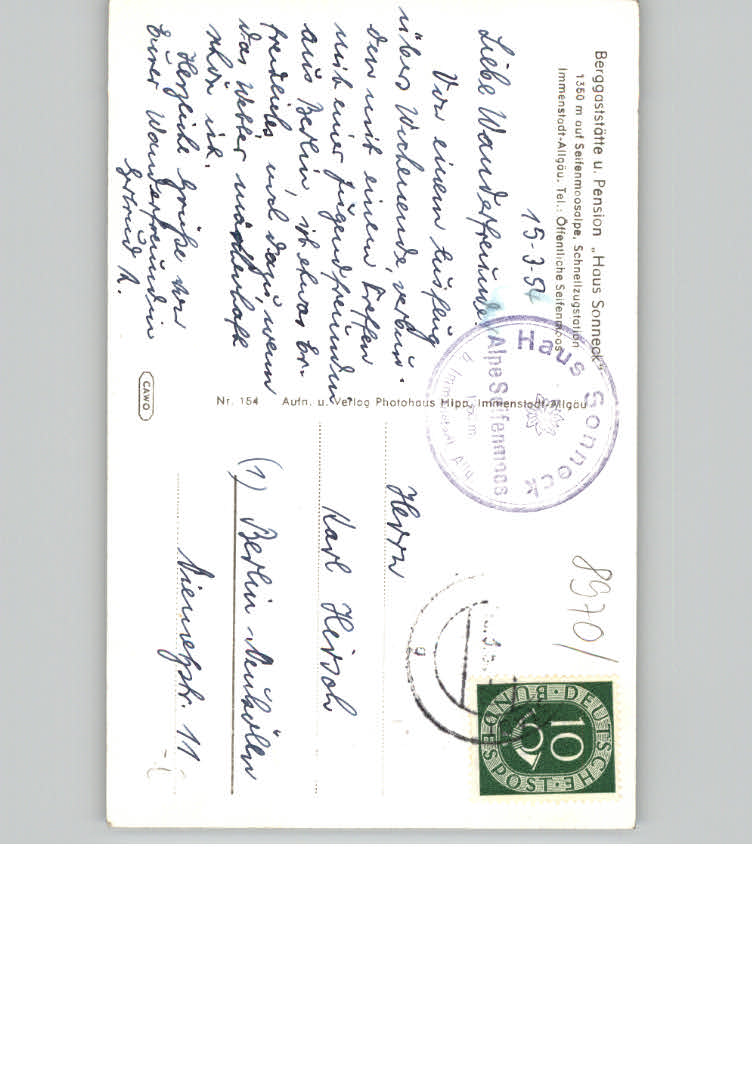 Berggaststätte u. Pension „Haus Sonneck"
1350 m auf Seifenmoosalpe, Schnellzugstation
Immenstadt-Allgäu. Tel.: Öffentliche Seifenmoos
15-3-54
Liebe Wanderfreunde
Von einem Ausflug
übers Wochenende, verbun-
den mit einem Treffen
mit einer Jugendfreundin
aus Berlin, ist etwas Er-
freuliches und dazu wenn
das Wetter märchenhaft
schön ist.
Herzliche Grüße von
Eurer Wanderfreundin
Gertrud R.
CAWO
Nr. 154 Aufn. u. Verlag Photohaus Hipp, Immenstadt-Allgäu
Haus Sonneck
Alpe Seifenmoos
b. Immenstadt Allg.
8970/
DEUTSCHE BUNDESPOST
10
Herrn
Karl Hirsch
(1) Berlin-Neukölln
11